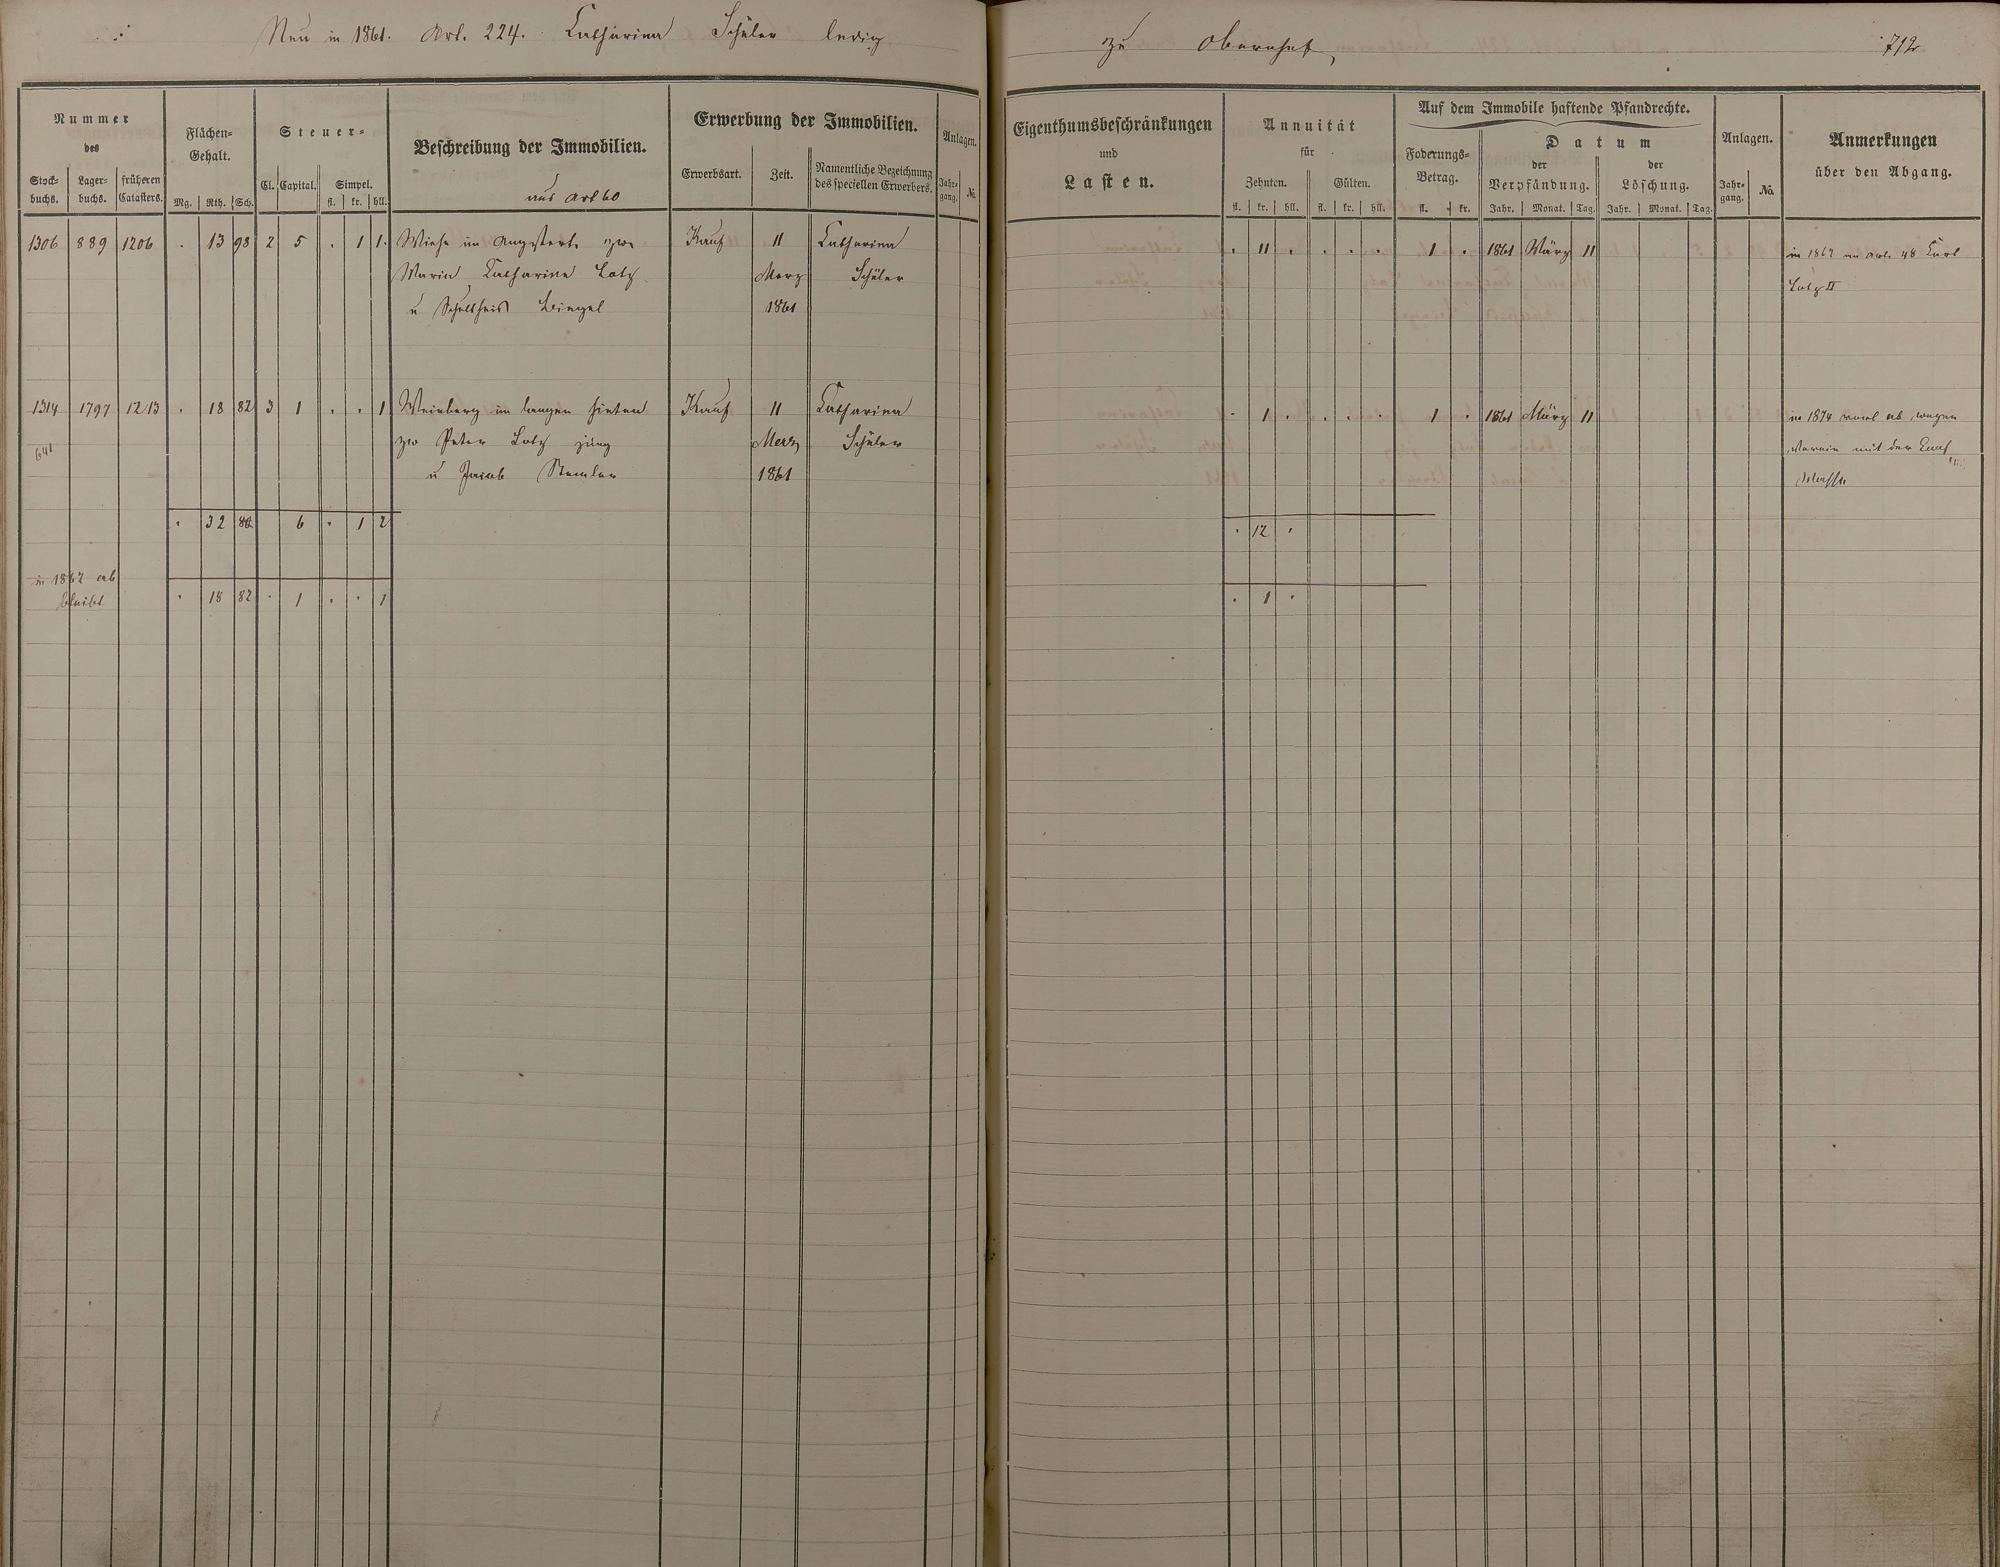 Neu in 1861. Art. 224. Catharina Schüler ledig
zu Obernhof,
712
Nummer
des
Stock-
buchs.
Lager-
buchs.
früheren
Catasters.
Flächen-
Gehalt.
Mg. Rth. Sch.
Steuer-
Cl. Capital. Simpel.
fl. kr. hll.
Beschreibung der Immobilien.
aus Art 60
Erwerbung der Immobilien.
Erwerbsart. Zeit.
Namentliche Bezeichnung
des speciellen Erwerbers.
Anlagen.
Jahr-
gang. No.
Eigenthumsbeschränkungen
und
Lasten.
Annuität
für
Zehnten. Gülten.
fl. kr. hll. fl. kr. hll.
Auf dem Immobile haftende Pfandrechte.
Foderungs-
Betrag.
fl. kr.
Datum
der
Verpfändung.
Jahr. Monat. Tag.
der
Löschung.
Jahr. Monat. Tag.
Anlagen.
Jahr-
gang. No.
Anmerkungen
über den Abgang.
1306 889 1206 . 13 98 2 5 . 1 1. Wiese im zw. Kauf 11 Catharina . 11 . . . . 1 . 1861 März 11 in 1862 an Art. 48 Carl
Maria Catharina Lotz Merz Schüler Lotz II
u Schultheis 1861
1314 1797 1213 . 18 82 3 1 . . 1 Weinberg im langen hinten Kauf 11 Catharina . 1 . . . . 1 . 1861 März 11 in 1874 ab wegen
641 zw Peter Lotz jung Merz Schüler mit der
u Jacob Stemler 1861 Masse
. 32 80 6 . 1 2 . 12 .
in 1862 ab
bleibt . 18 82 . 1 . . 1 . 1 .